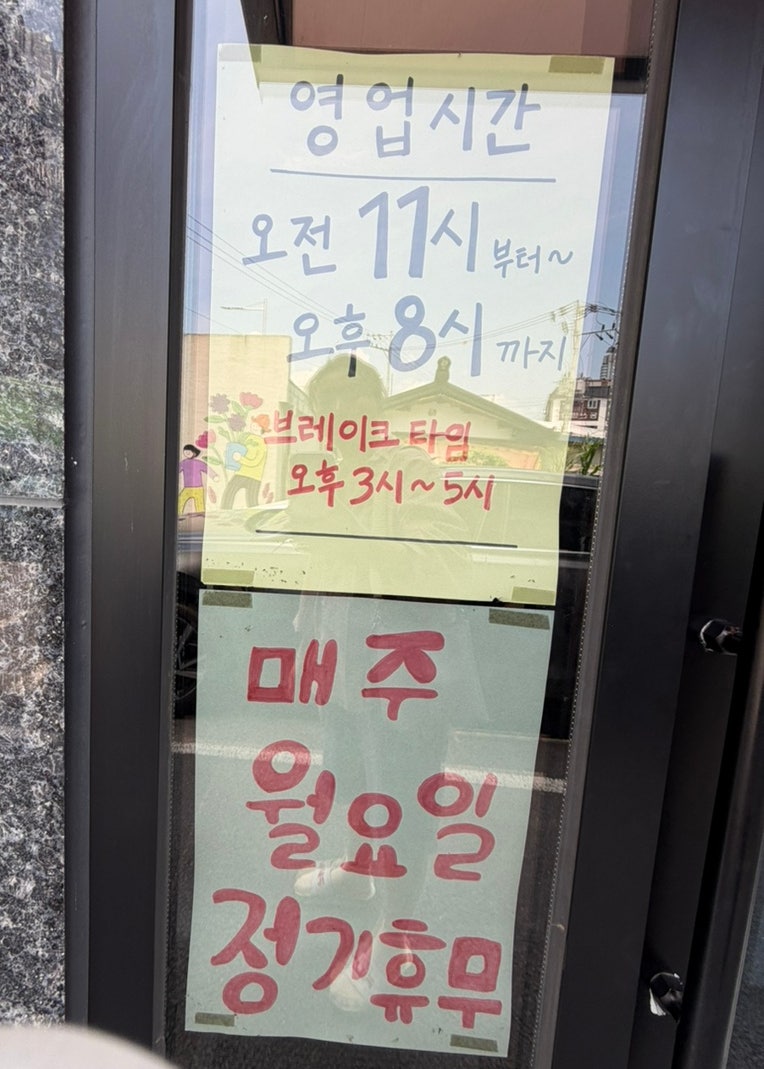 영업시간
오전 11시 부터~
오후 8시 까지
브레이크 타임
오후 3시~5시
매주
월요일
정기휴무